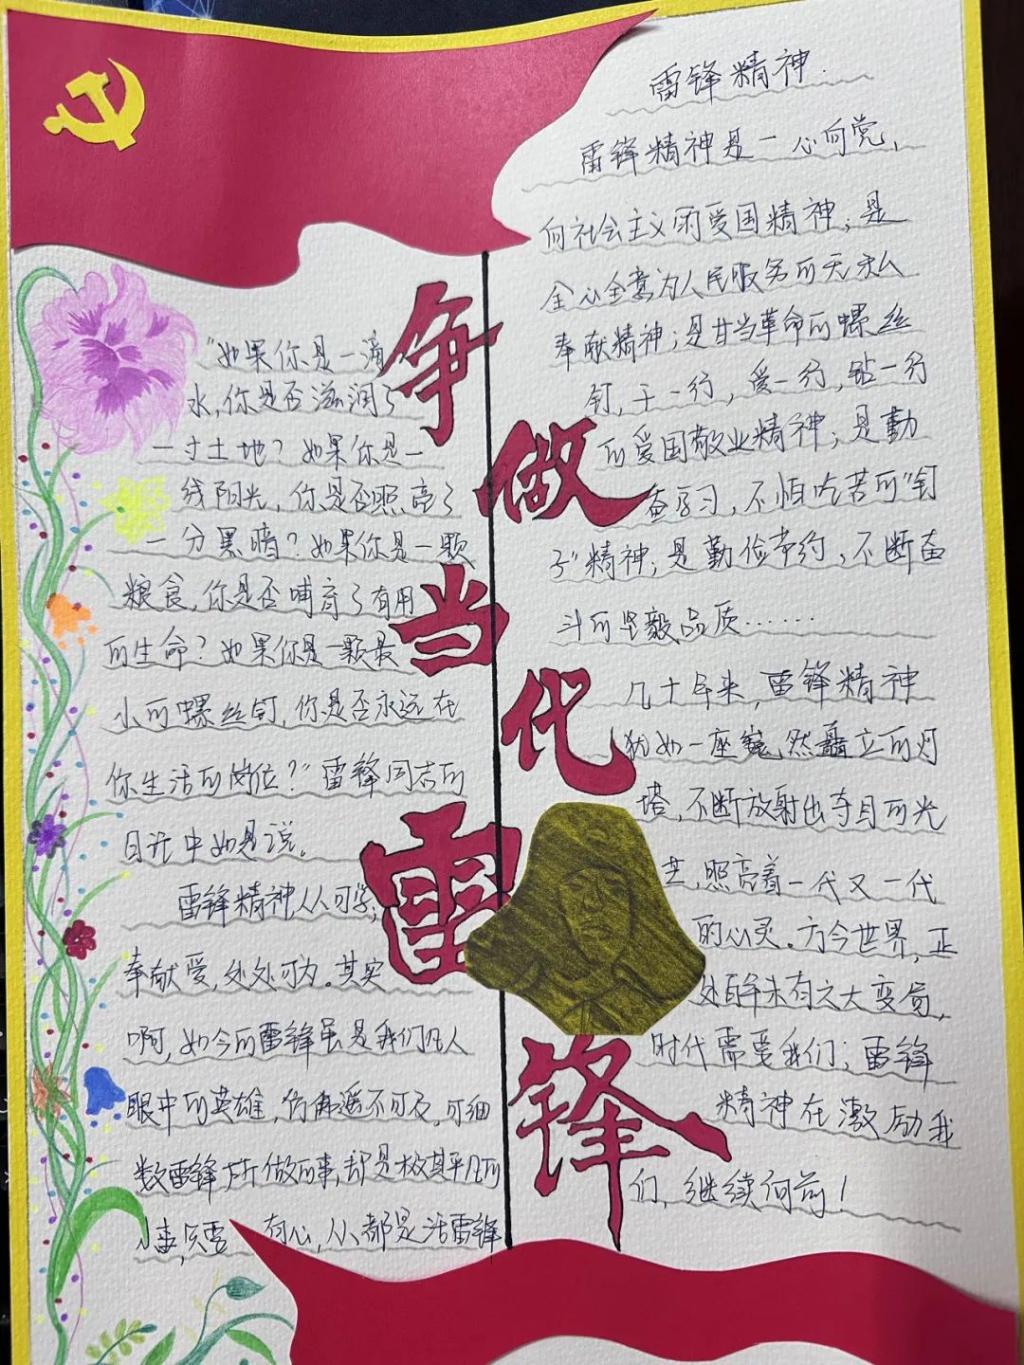 争做当代雷锋
"如果你是一滴
水,你是否滋润了
一寸土地?如果你是一
线阳光,你是否照亮了
一分黑暗?如果你是一颗
粮食,你是否哺育了有用
的生命?如果你是一颗最
小的螺丝钉,你是否永远在
你生活的岗位?"雷锋同志的
日记中如是说。
雷锋精神人人可学;
奉献爱,处处可为。其实
啊,如今的雷锋虽是我们凡人
眼中的英雄,仿佛遥不可及,可细
数雷锋所做的事,却是极其平凡的
小事,只要有心,人人都是活雷锋
雷锋精神:
雷锋精神是一心向党,
向社会主义的爱国精神;是
全心全意为人民服务的无私
奉献精神;是甘当革命的螺丝
钉,干一行,爱一行,钻一行
的爱国敬业精神;是勤
奋学习,不怕吃苦的"钉
子"精神;是勤俭节约,不断奋
斗的坚毅品质……
几十年来,雷锋精神
犹如一座巍然矗立的灯
塔,不断放射出夺目的光
芒,照亮着一代又一代
的心灵。方今世界,正
处百年未有之大变局,
时代需要我们;雷锋
精神在激励我
们,继续向前!